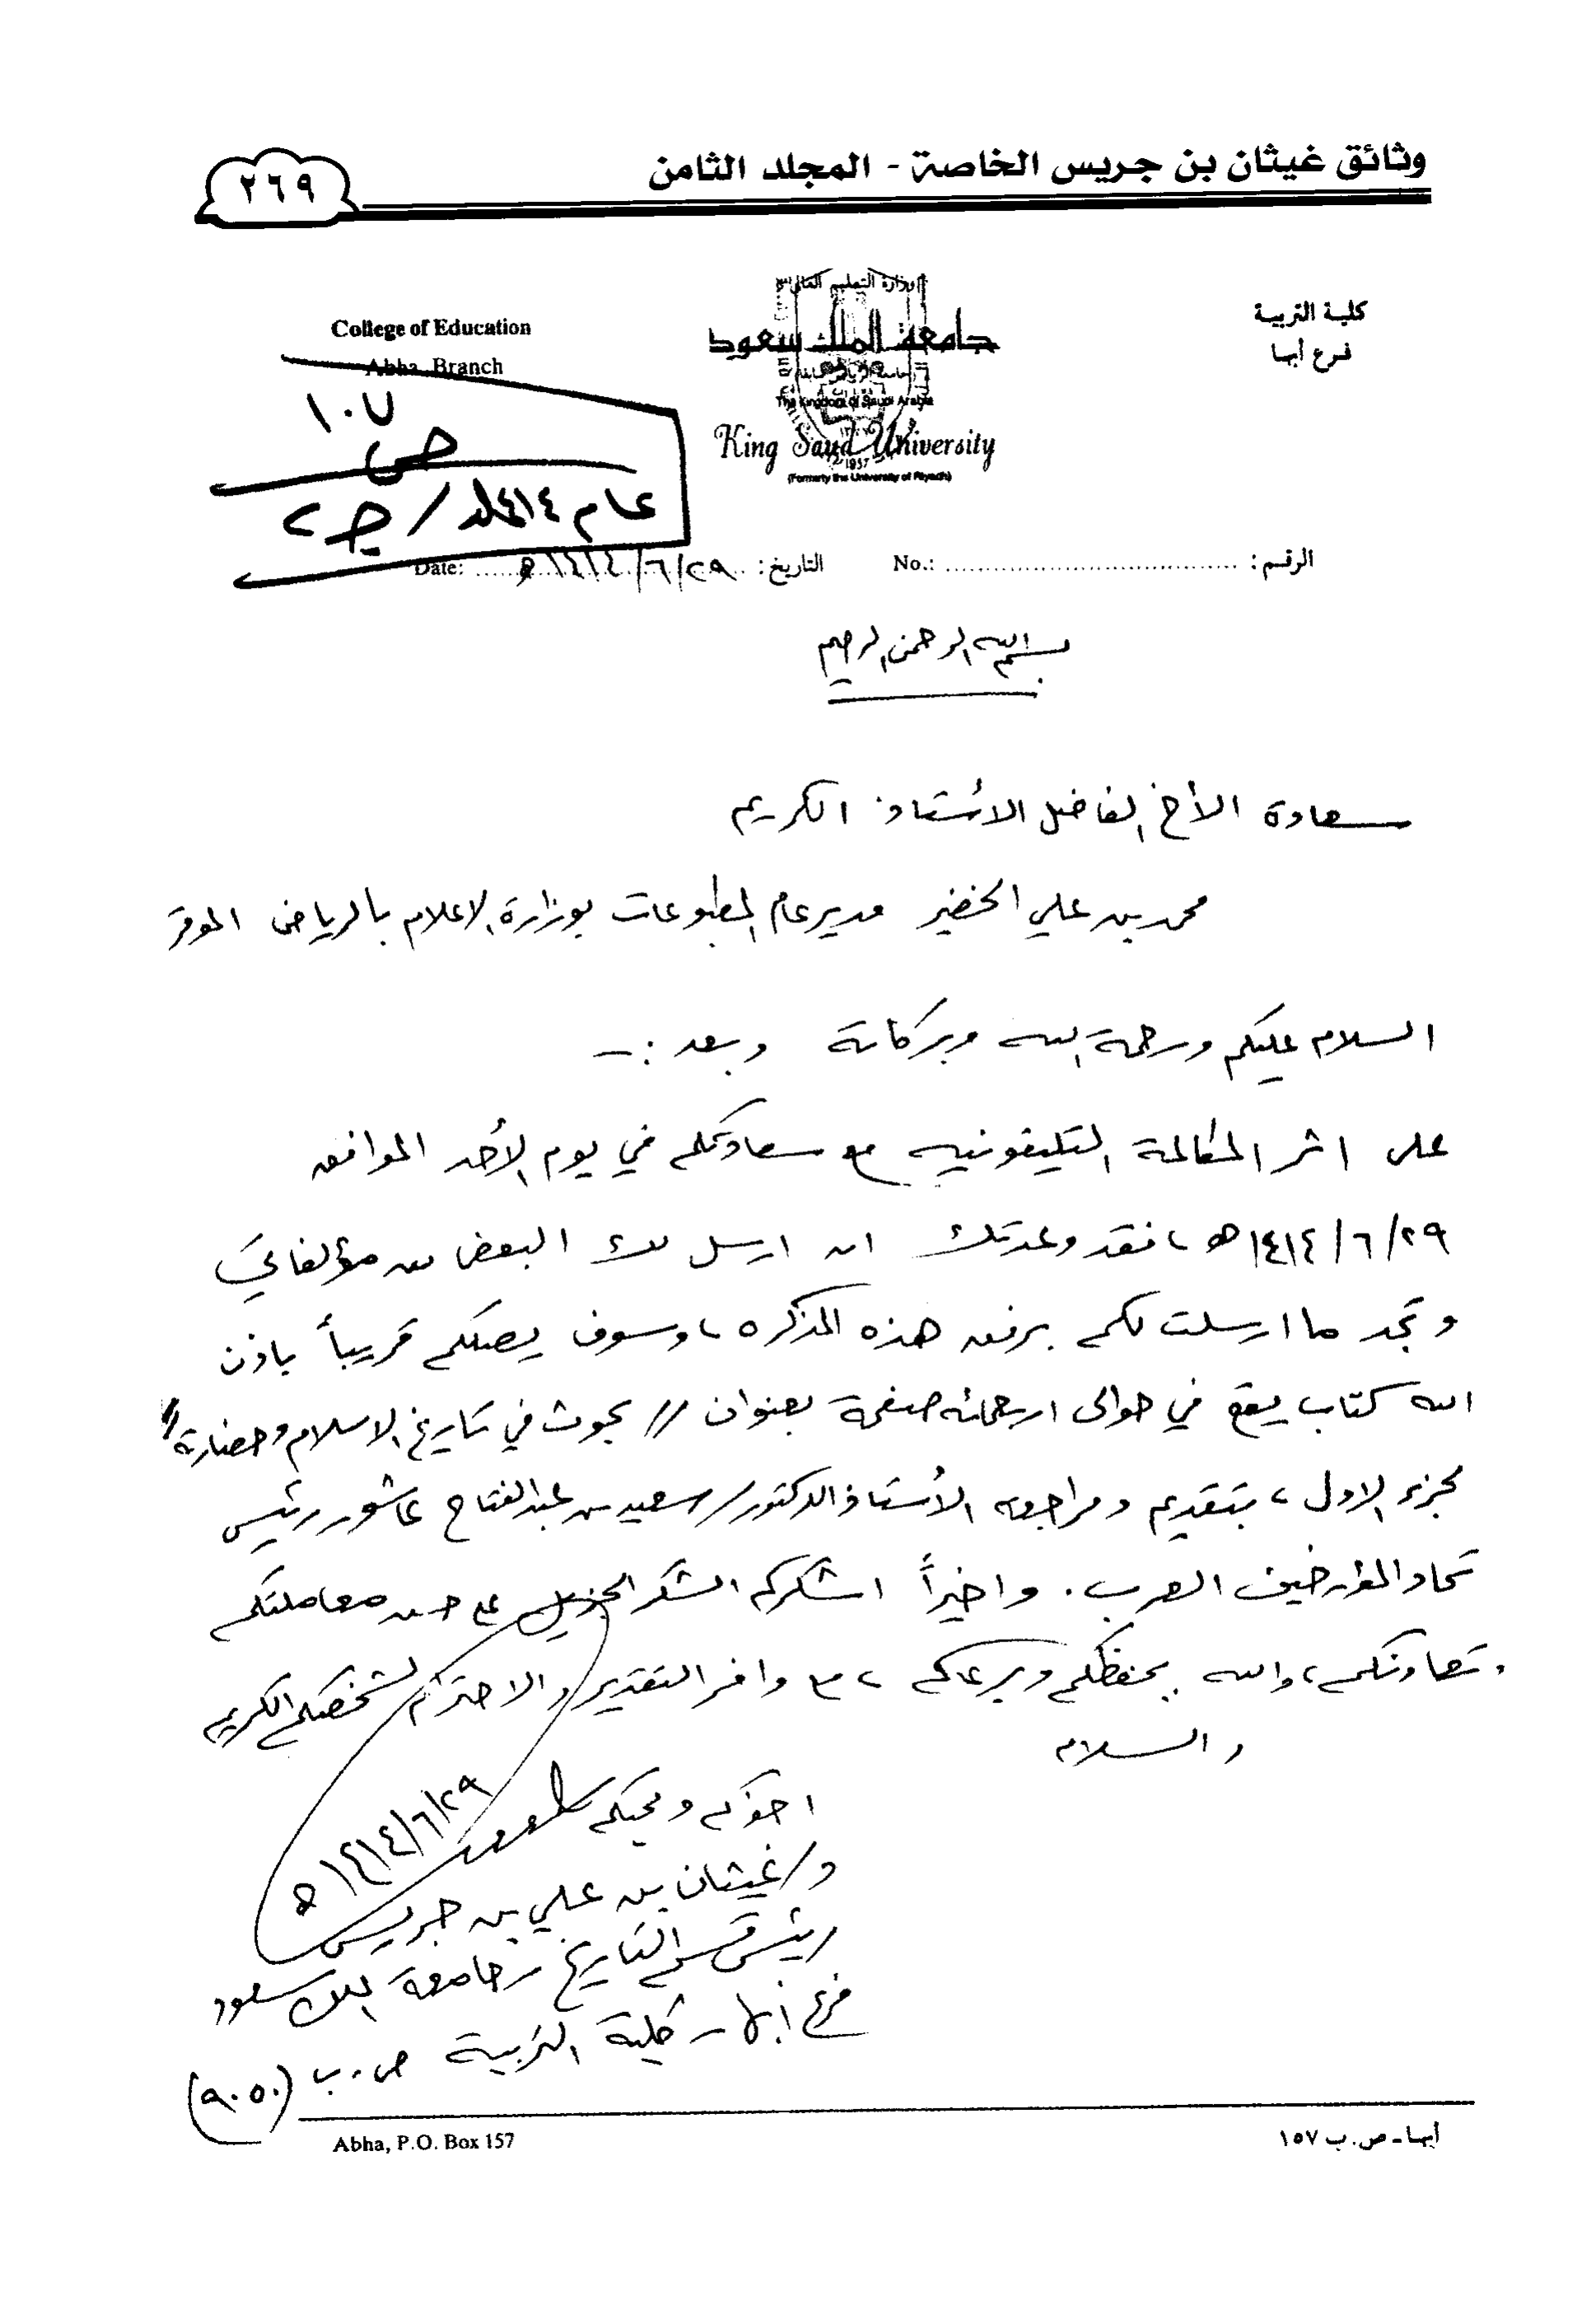 وثائق غيثان بن جريس الخاصة - المجلد الثامن
٢٦٩
كلية التربية
فرع أبها
وزارة التعليم العالي
جامعة الملك سعود
The Kingdom of Saudi Arabia
King Saud University
1957
(Formerly the University of Riyadh)
College of Education
Abha Branch
١٠٧
ص
عام ١٤ المجلد / جـ ٢
الرقم: No.:
التاريخ: ٢٩/٦/١٤١٤هـ Date:
بسم الله الرحمن الرحيم
سعادة الأخ الفاضل الأستاذ الكريم
محمد بن علي الخضير مدير عام المطبوعات بوزارة الاعلام بالرياض الموقر
السلام عليكم ورحمة الله وبركاتة وبعد :ــ
على اثر المكالمة التليفونيه مع سعادتكم في يوم الأحد الموافق
٢٩/٦/١٤١٤هـ، فقد وعدتك ان ارسل لك البعض من مؤلفاتي
وتجد ما ارسلت لكم برفق هذه المذكره، وسوف يصلكم قريباً باذن
الله كتاب يقع في حوالى اربعمائه صفحة بعنوان // بحوث في تاريخ الاسلام وحضارتة //
لجزء الاول، بتقديم ومراجعه الأستاذ الدكتور/ سعيد بن عبدالفتاح عاشور رئيس
تحاد المؤرخين العرب. واخيراً اشكركم الشكر الجزيل على حسن معاملتكم
وتعاونكم، والله يحفظكم ويرعاكم، مع وافر التقدير والاحترام لشخصكم الكريم
والسلام
اخوكم ومحبكم
٢٩/٦/١٤١٤هـ
د/ غيثان بن علي بن جريس
رئيس قسم التاريخ - جامعة الملك سعود
فرع أبها - كلية التربية ص.ب (٩٠٥٠)
أبها - ص. ب ١٥٧
Abha, P.O. Box 157